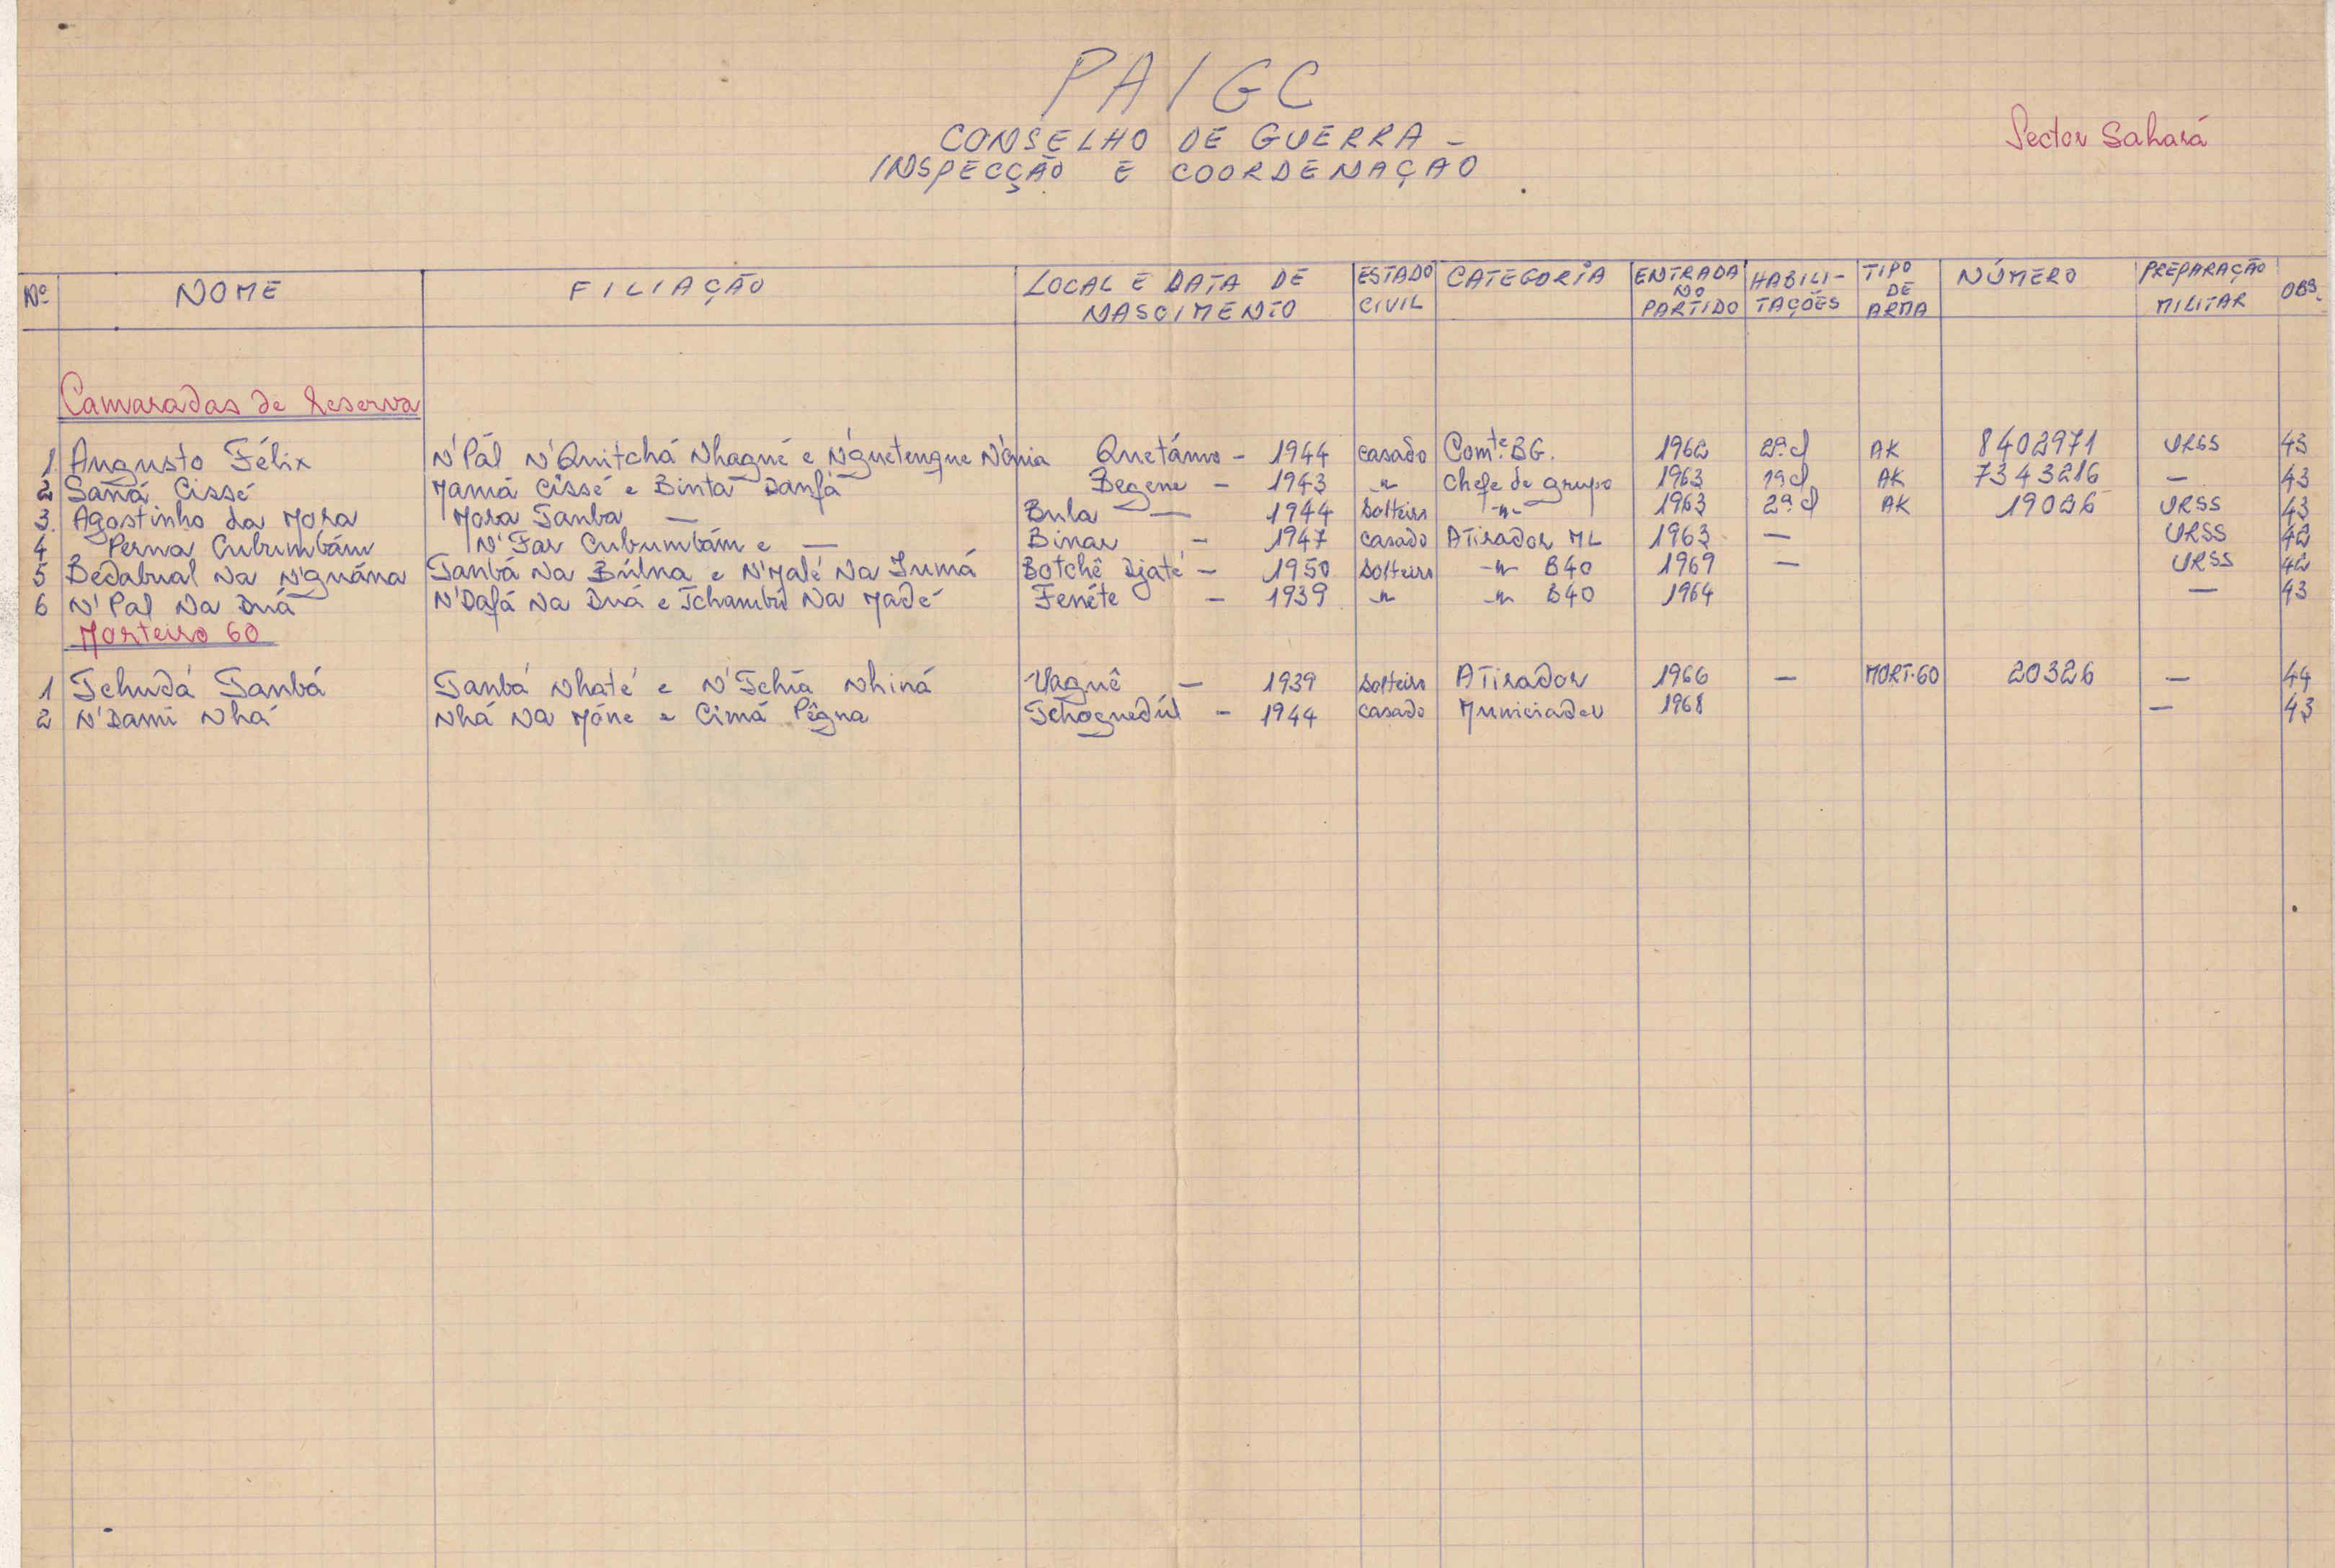 PAIGC
CONSELHO DE GUERRA -
INSPECÇÃO E COORDENAÇÃO
Sector Sahará
Nº NOME FILIAÇÃO LOCAL E DATA DE NASCIMENTO ESTADO CIVIL CATEGORIA ENTRADA NO PARTIDO HABILI-TAÇÕES TIPO DE ARMA NÚMERO PREPARAÇÃO MILITAR OBS.
Camaradas de reserva
1 Augusto Félix N'Pál N'Quitchá Nhagué e N'guetengue N'ónia Quetámo - 1944 casado Comte. BG. 1962 2ª cl AK 8402971 URSS 43
2 Saná Cissé Mamá Cissé e Binta Danfá Begene - 1943 -"- Chefe de grupo 1963 1ª cl AK 7343286 - 43
3. Agostinho da Mora Mora Tamba - Bula - 1944 Solteiro -"- 1963 2ª cl AK 19026 URSS 43
4 Perna Cubumbám N'Far Cubumbám e - Binar - 1947 casado Atirador ML 1963 - URSS 42
5 Bedabual Na N'guána Tambá Na Búlna e N'Malé Na Iumá Botchê Djaté - 1950 Solteiro -"- B40 1969 - URSS 42
6 N'Pal Na Duá N'Dafá Na Duá e Tchambú Na Madé Fenéte - 1939 -"- -"- B40 1964 - 43
Morteiro 60
1 Tchudá Tambá Tambá Nhaté e N'Tchia Nhiná Uaguê - 1939 Solteiro Atirador 1966 - MORT.60 20326 - 44
2 N'Dami Nhá Nhá Na Móne e Cimá Pêgna Tchoguedúl - 1944 casado Municiador 1968 - 43